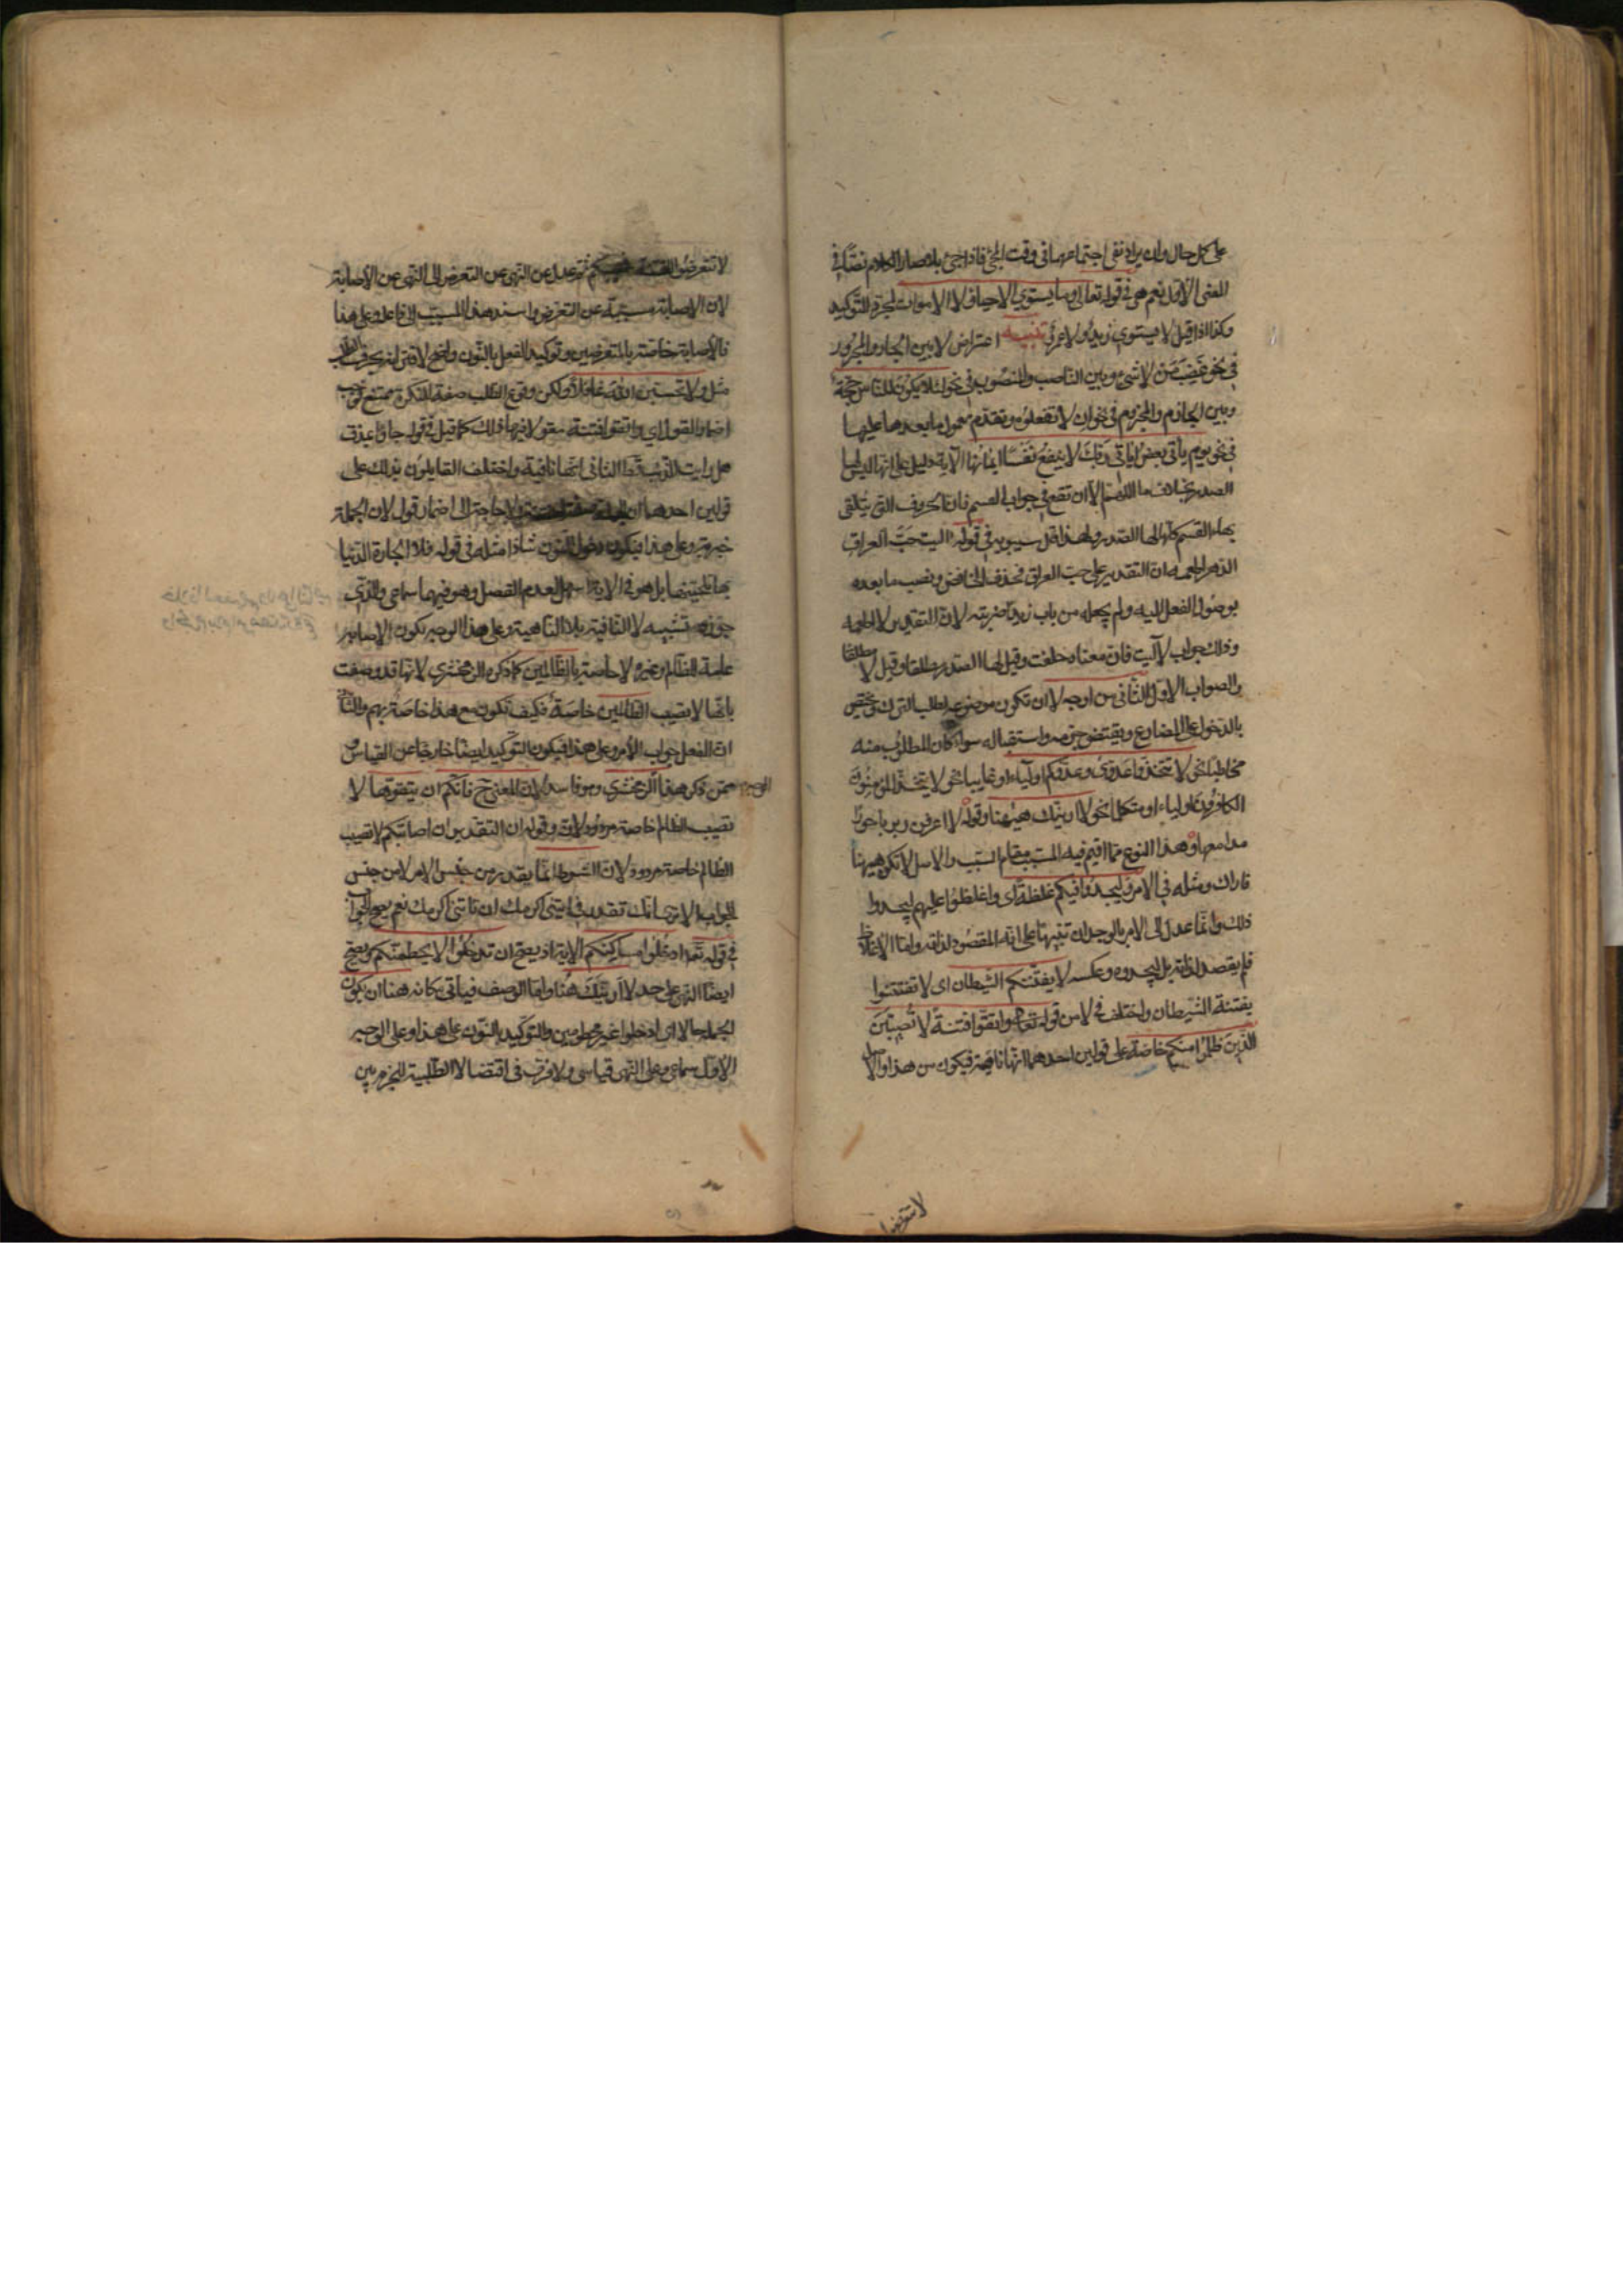 على كل حال وان يراد نفى اجتماعهما فى وقت المجئ فاذا جئ بلا صار الكلام نصّا فى
المعنى الاوّل نعم هى فى قوله تعالى وما يستوي الاحياء ولا الاموات لمجرّد التّوكيد
وكذا اذا قيل لا يستوي زيد ولا عمرو تنبيه اعتراض لا بين الجار والمجرور
فى نحو غضبت من لا شئ وبين الناصب والمنصوب فى نحو لئلا يكون للناس حجة
وبين الجازم والمجزوم فى نحو ان لا تفعلوه وتقدّم معمول ما بعدها عليها
فى نحو يوم يأتى بعض ايات ربك لا ينفع نفسا ايمانها الآية دليل على انها ليس لها
الصدر بخلاف ما اللهم الا ان تقع فى جواب القسم فان الحروف التى يتلقى
بها القسم كلها لها الصدر ولهذا قال سيبويه فى قوله اليت حبّ العراق
الدهر اطعمه ان التقدير على حب العراق فحذف الخافض ونصب ما بعده
بوصول الفعل اليه ولم يجعله من باب زيدا ضربته لان التقدير لا اطعمه
وذلك جواب لآليت فان معناه حلفت وقيل لها الصدر مطلقا وقيل لا مطلقا
والصواب الاوّل الثّانى من اوجه لا ان تكون موضوعة لطلب الترك وتختص
بالدخول على المضارع ويقتضى جزمه واستقباله سواء كان المطلوب منه
مخاطبا نحو لا تتخذوا عدوّى وعدوّكم اولياء او غايبا نحو لا يتخذ المؤمنون
الكافرين اولياء او متكلما نحو لا ارينّك هيهنا وقوله لا اعرفن ربربا حورا
مدامعها وهذا النوع ممّا اقيم فيه المسبب مقام السّبب والاصل لا تكن هيهنا
فاراك ومثله فى الامر وليجدوا فيكم غلظة اى واغلظوا عليهم ليجدوا
ذلك وانّما عدل الى الامر بالوجدان تنبيها على انه المقصود لذاته وامّا الاغلاظ
فلم يقصد لذاته بل ليجدوه وعكسه لا يفتننّكم الشّيطان اى لا تفتتنوا
بفتنة الشّيطان واختلف فى لا من قوله تعالى واتقوا فتنةً لا تصيبنّ
الّذين ظلموا منكم خاصة على قولين احدهما انها ناهية فيكون من هذا والاصل
لا تتعرضوا
لا تتعرضوا للفتنة فتصيبكم ثم عدل عن النهى عن التعرض الى النهى عن الاصابة
لان الاصابة مسبّبة عن التعرض واسند هذا المسبّب الى فاعله وعلى هذا
فالاصابة خاصّة بالمتعرضين وتوكيد الفعل بالنّون واضح لاقترانه بحرف الطلب
مثل ولا تحسبنّ الله غافلا ولكن وقوع الطّلب صفة للنكرة ممتنع فوجب
اضمار القول اى واتقوا فتنة مقولا فيها ذلك كما قيل فى قوله جاؤا بمذق
هل رايت الذئب قطّ الثانى انّها نافية واختلف القايلون بذلك على
قولين احدهما ان الجملة صفة لفتنة ولا حاجة الى اضمار قول لان الجملة
خبرية وعلى هذا فيكون دخول النون شاذا مثله فى قوله فلا الجارة الدّنيا
بها تلحينّها بل هو فى الآية اسهل لعدم الفصل وهو فيهما سماعى والّذى
جوّزه تشبيه لا النّافية بلا النّاهية وعلى هذا الوجه تكون الاصابة
عامة للظّالم وغيره لا خاصة بالظالمين كما ذكره الزمخشري لانها قد وصفت
بانّها لا تصيب الظالمين خاصة فكيف تكون مع هذا خاصة بهم والثّانى
انّ الفعل جواب الامر وعلى هذا فيكون التوكيد ايضا خارجا عن القياس
وممّن ذكر هذا الوجه الزمخشري وهو فاسد لان المعنى ح فانّكم ان تتّقوها لا
تصيب الظالم خاصة مردود لان وقوله ان التقدير ان اصابتكم لا تصيب
الظالم خاصة مردود لانّ الشّرط انّما يقدر من جنس الامر لا من جنس
الجواب الا ترى انّك تقدر فى ايتنى اكرمك ان تاتنى اكرمك نعم يصح الجواب
فى قوله تعالى ادخلوا مساكنكم الآية اذ يصح ان تدخلوا لا يحطمنّكم ويصح
ايضا النّهى على حد لا ارينّك هنا وامّا الوصف فيأتى مكانه هنا ان تكون
الجملة حالا اى ادخلوا غير محطومين والتوكيد بالنّون على هذا وعلى الوجه
الاوّل سماعى وعلى النّهى قياسى ولا فرق فى اقتضاء لا الطّلبية للجزم بين